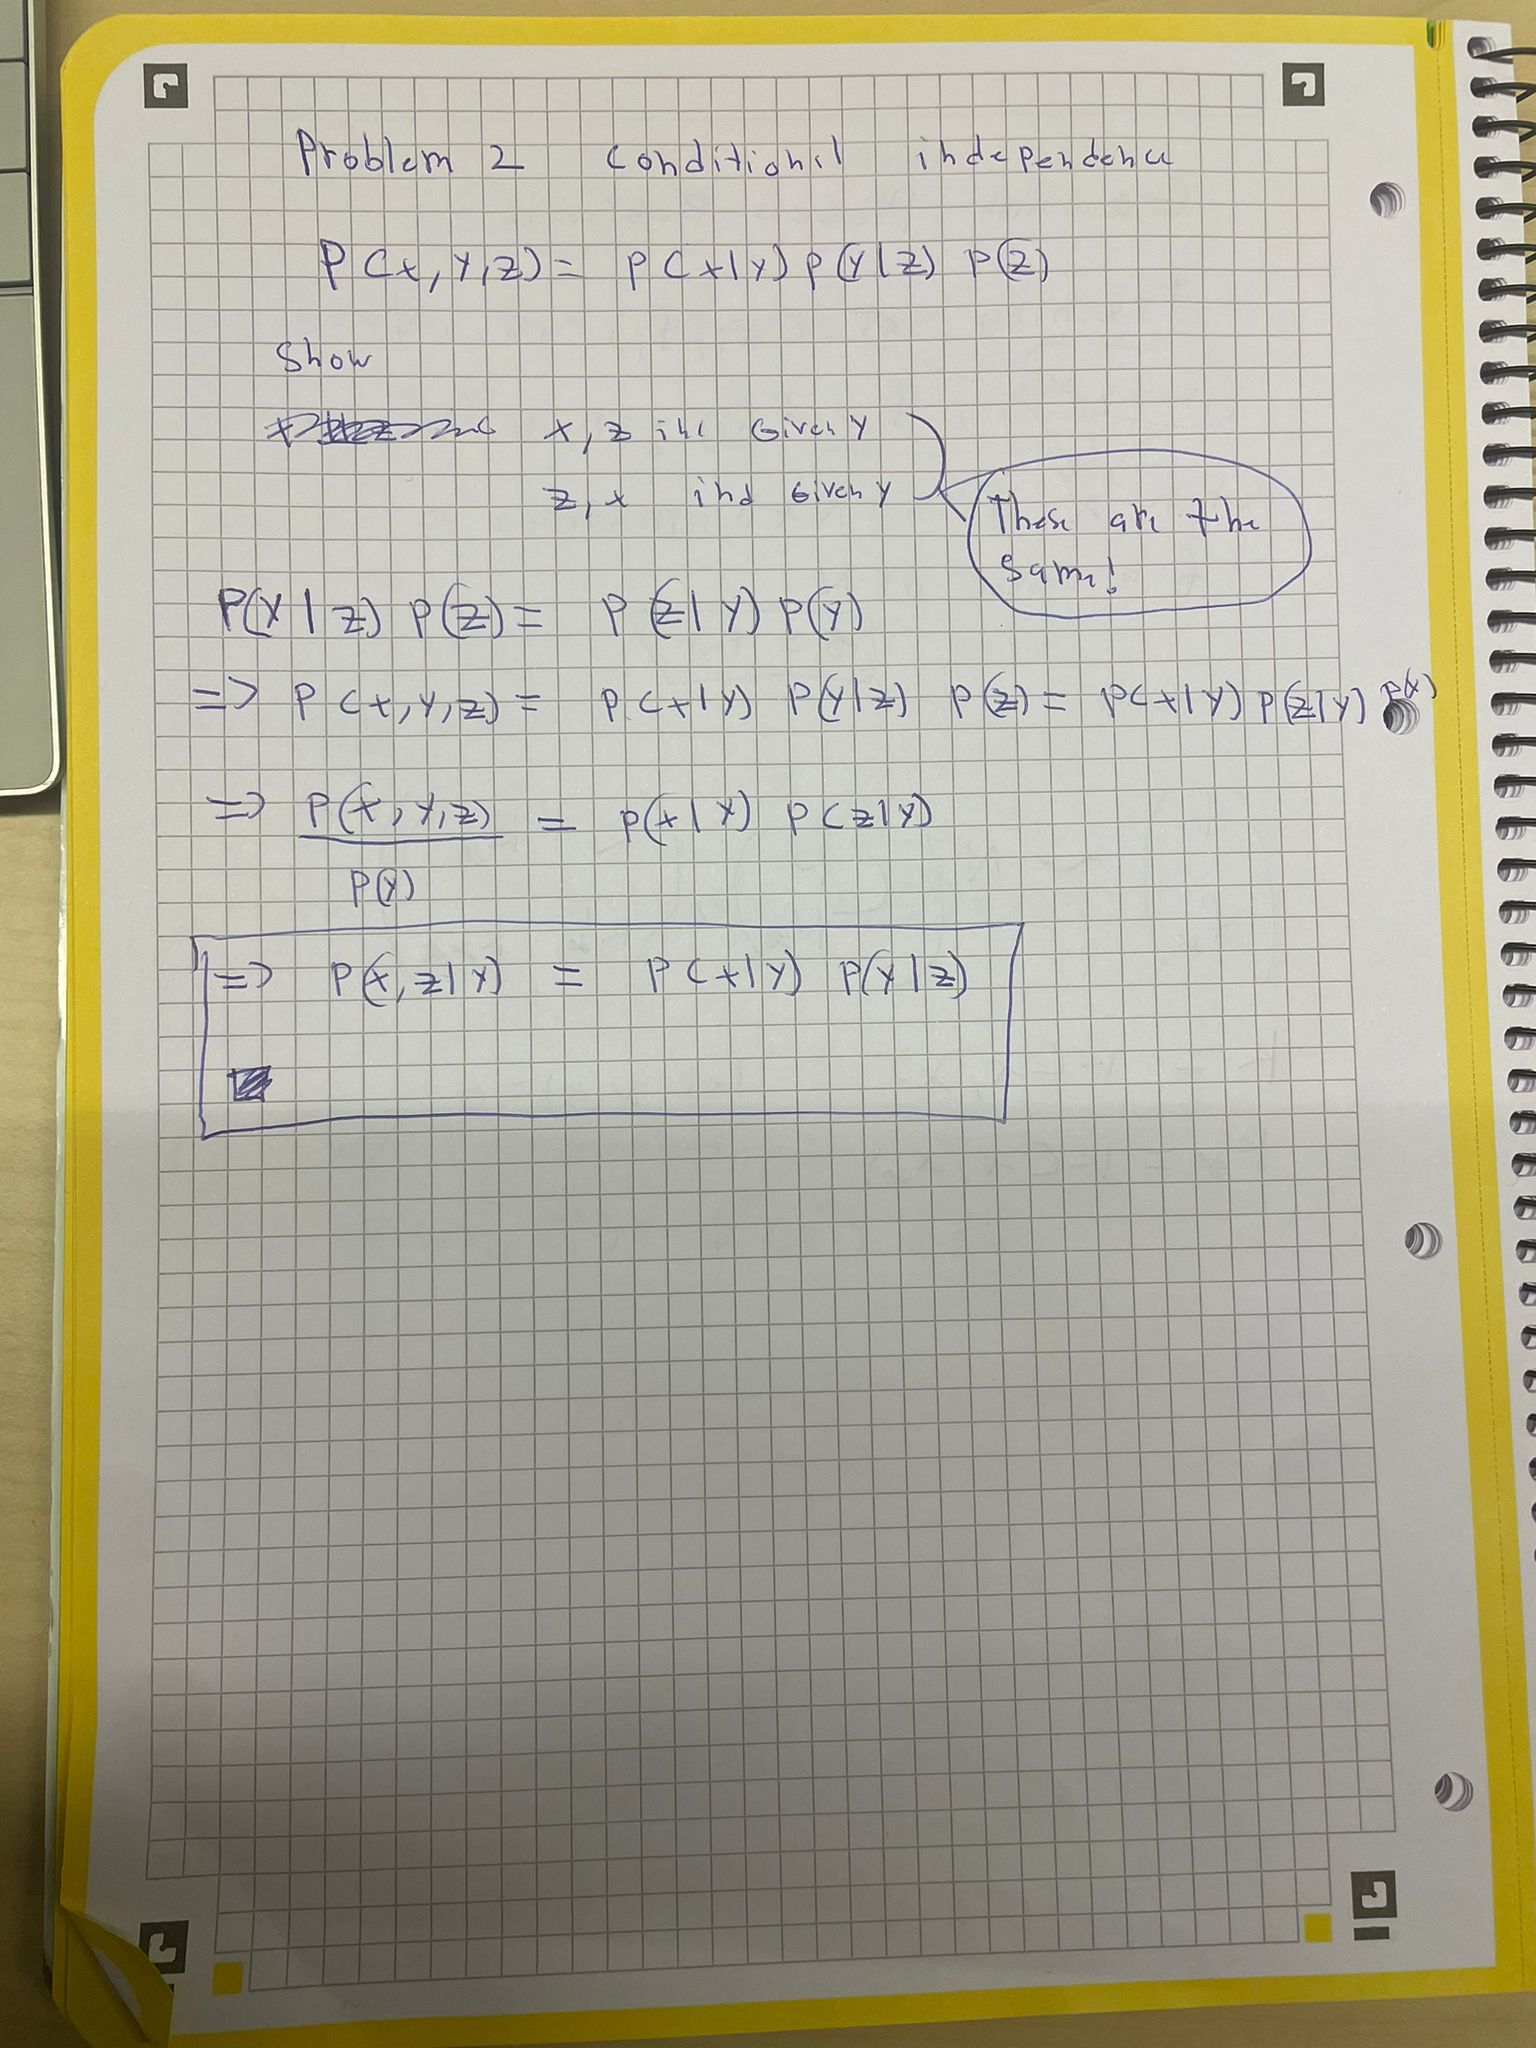 Problem 2 conditional independence
P(x,y,z) = P(x|y) p(y|z) p(z)
Show
x, z ind Given y
z, x ind Given y
These are the
same!
P(y|z) P(z) = P(z|y) P(y)
=> P(x,y,z) = P(x|y) P(y|z) P(z) = P(x|y) P(z|y) P(y)
=> P(x,y,z) = P(x|y) P(z|y)
P(y)
=> P(x,z|y) = P(x|y) P(y|z)